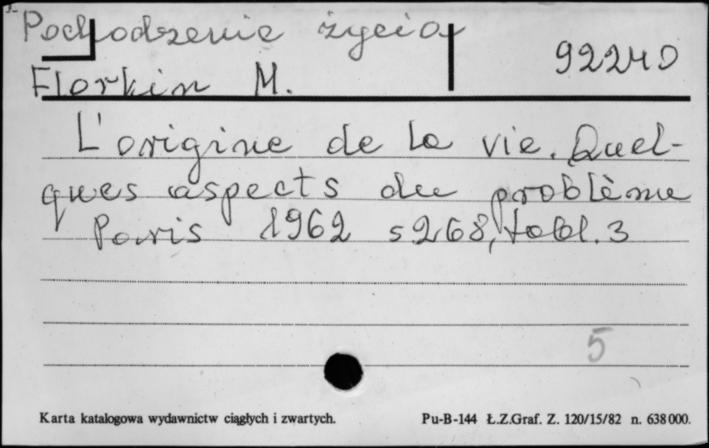 Pochodzenie życia
92240
Florkin M.
L'origine de la vie. Quel-
ques aspects du problème
Paris 1962 s 268, tabl. 3
5
Karta katalogowa wydawnictw ciągłych i zwartych.
Pu-B-144 Ł.Z.Graf. Z. 120/15/82 n. 638000.